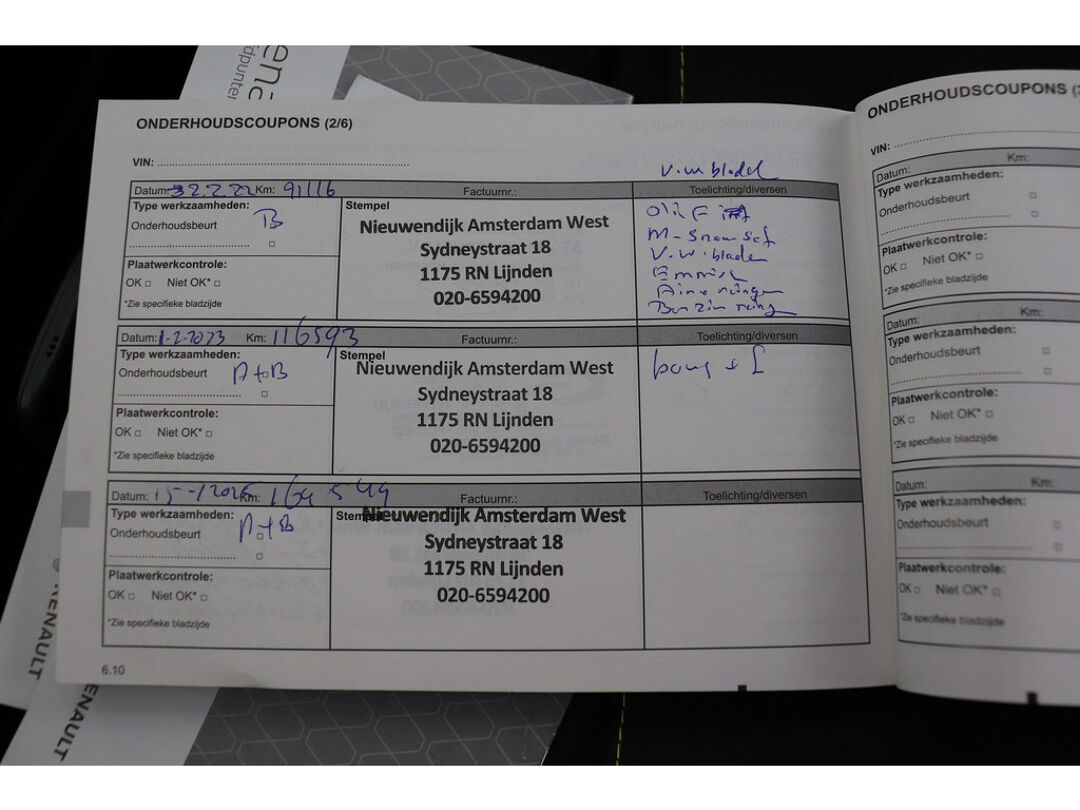 ONDERHOUDSCOUPONS (2/6)
VIN:
Datum: 2.2.22 Km: 91116 Factuurnr.: Toelichting/diversen
Type werkzaamheden: B
Onderhoudsbeurt
Plaatwerkcontrole:
OK Niet OK*
*Zie specifieke bladzijde
Stempel
Nieuwendijk Amsterdam West
Sydneystraat 18
1175 RN Lijnden
020-6594200
Datum: 1-2-2023 Km: 116593 Factuurnr.: Toelichting/diversen
Type werkzaamheden:
Onderhoudsbeurt A+B
Plaatwerkcontrole:
OK Niet OK*
*Zie specifieke bladzijde
Stempel
Nieuwendijk Amsterdam West
Sydneystraat 18
1175 RN Lijnden
020-6594200
Datum: Km: 164549 Factuurnr.: Toelichting/diversen
Type werkzaamheden:
Onderhoudsbeurt A+B
Plaatwerkcontrole:
OK Niet OK*
*Zie specifieke bladzijde
Stempel
Nieuwendijk Amsterdam West
Sydneystraat 18
1175 RN Lijnden
020-6594200
6.10
ONDERHOUDSCOUPONS (3
VIN:
Datum: Km:
Type werkzaamheden:
Onderhoudsbeurt
Plaatwerkcontrole:
OK Niet OK*
*Zie specifieke bladzijde
Datum: Km:
Type werkzaamheden:
Onderhoudsbeurt
Plaatwerkcontrole:
OK Niet OK*
*Zie specifieke bladzijde
Datum: Km:
Type werkzaamheden:
Onderhoudsbeurt
Plaatwerkcontrole:
OK Niet OK*
*Zie specifieke bladzijde
RENAULT
ENAULT